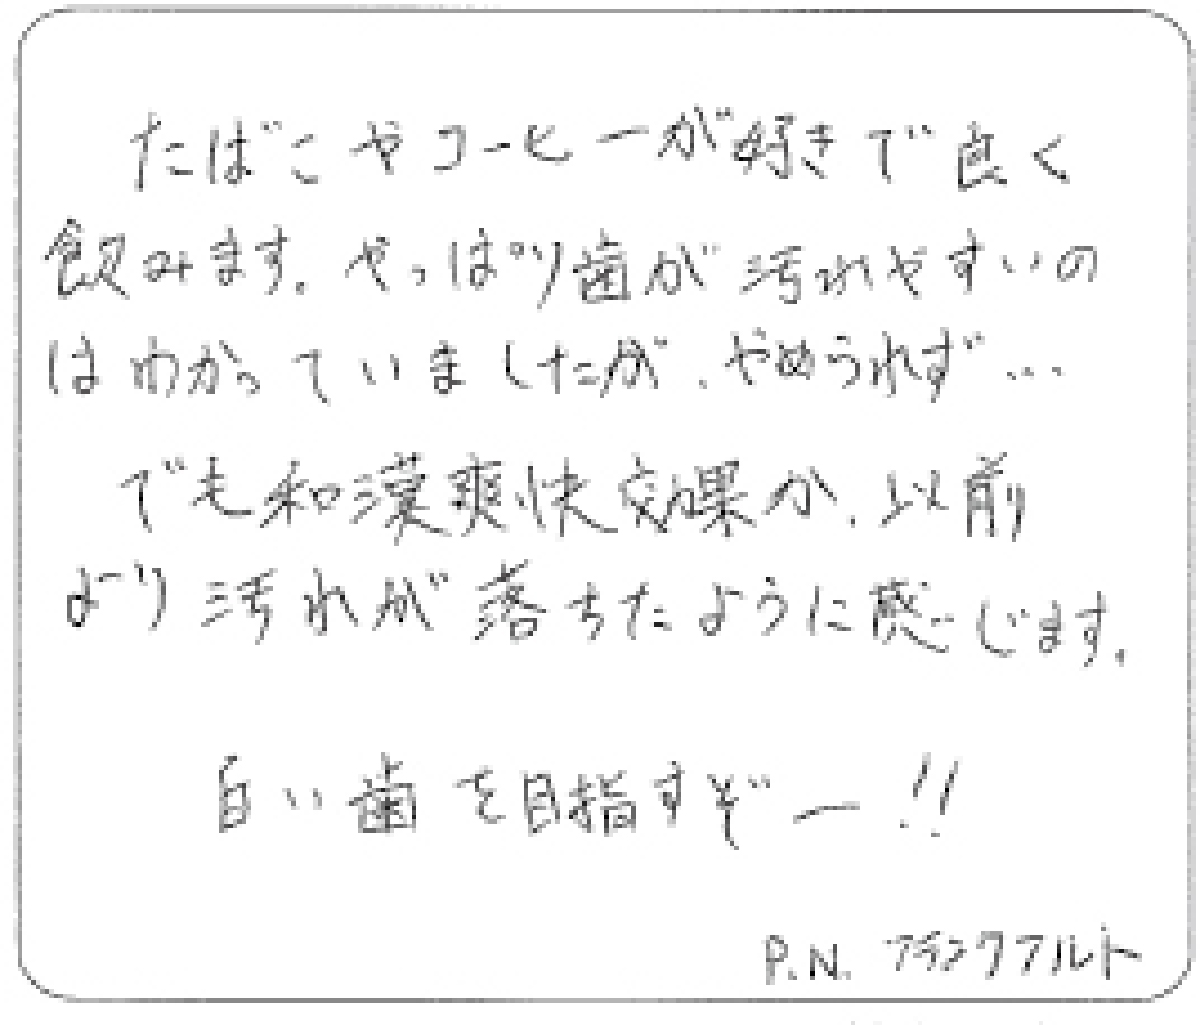 たばこやコーヒーが好きで良く
飲みます。やっぱり歯が汚れやすいの
はわかっていましたが、やめられず…
でも和漢爽快効果か、以前
より汚れが落ちたように感じます。
白い歯を目指すぞー!!
P.N. フランクフルト